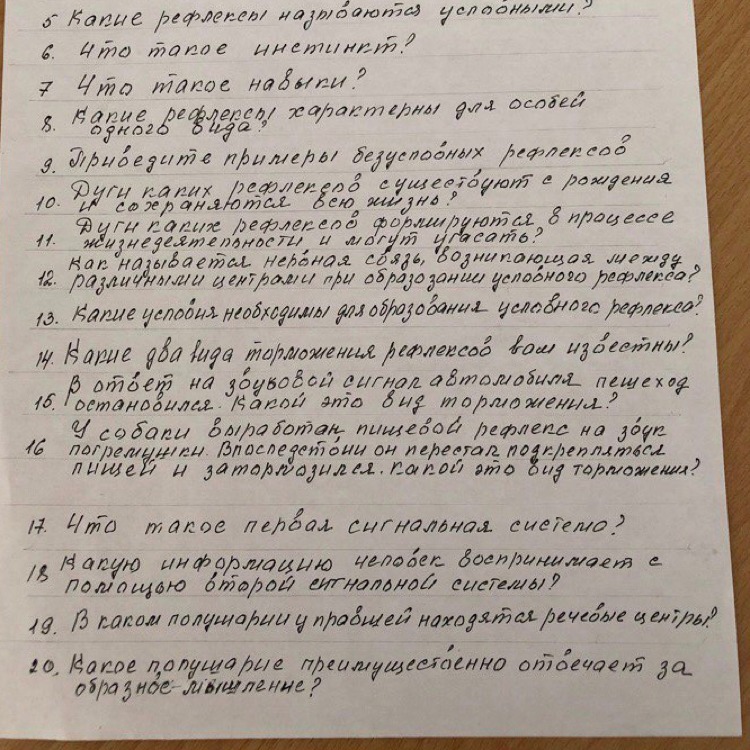 5 Какие рефлексы называются условными?
6. Что такое инстинкт?
7 Что такое навыки?
8. Какие рефлексы характерны для особей
одного вида?
9. Приведите примеры безусловных рефлексов
10. Дуги каких рефлексов существуют с рождения
и сохраняются всю жизнь?
11. Дуги каких рефлексов формируются в процессе
жизнедеятельности и могут угасать?
12. Как называется нервная связь, возникающая между
различными центрами при образозании условного рефлекса?
13. Какие условия необходимы для образования условного рефлекса?
14. Какие два вида торможения рефлексов вам известны?
15. В ответ на звуковой сигнал автомобиля пешеход
остановился. Какой это вид торможения?
16 У собаки выработан пищевой рефлекс на звук
погремушки. Впоследствии он перестал подкрепляться
пищей и затормозился. Какой это вид торможения?
17. Что такое первая сигнальная система?
18 Какую информацию человек воспринимает с
помощью второй сигнальной системы?
19. В каком полушарии у правшей находятся речевые центры?
20. Какое полушарие преимущественно отвечает за
образное мышление?